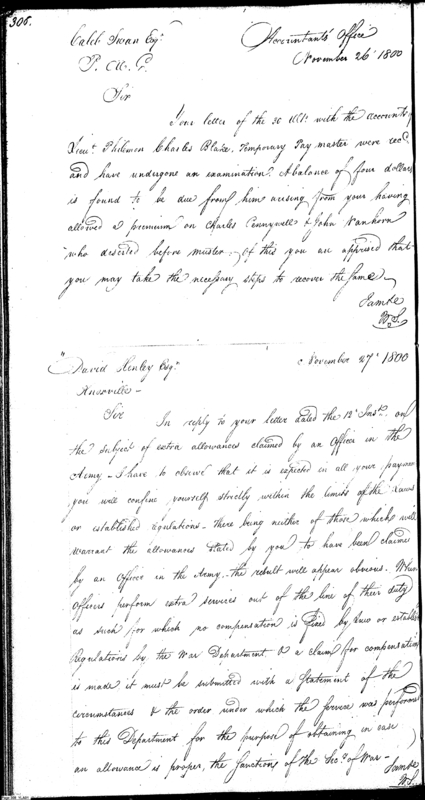 306.
Caleb Swan Esqr. Accountants' Office
P. M. G. November 26th 1800
Sir
Your letter of the 30 Ulto. with the accounts of
Lieut. Philemon Charles Blake, Temporary Pay master were recd.
and have undergone an examination. A balance of four dollars
is found to be due from him arising from your having
allowed a premium on Charles Pennywell & John Vanhorn
who deserted before muster, of this you are apprised that
you may take the necessary steps to recover the same.
Same
W. S.
David Henley Esqr. November 27th 1800
Knoxville
Sir In reply to your letter dated the 12th Inst. on
the subject of extra allowances claimed by an Officer in the
Army - I have to observe that it is expected in all your payments
you will confine yourself strictly within the limits of the Laws
or established regulations - there being neither of those which will
warrant the allowances stated by you to have been claimed
by an Officer in the Army, the result will appear obvious. When
Officers perform extra services out of the line of their duty
as such for which no compensation is fixed by Law or established
Regulations by the War Department & a claim for compensation
is made it must be submitted with a statement of the
circumstances & the order under which the service was performed
to this Department for the purpose of obtaining in case
an allowance is proper, the sanctions of the Secy. of War -
Same
W. S.